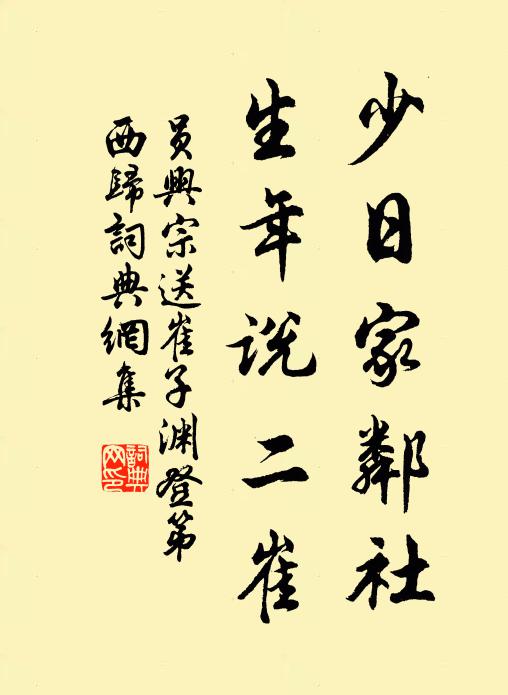 少日家鄰社
生年説二崔
員興宗送崔子渊登第
西歸詞典網集
詞典
网印